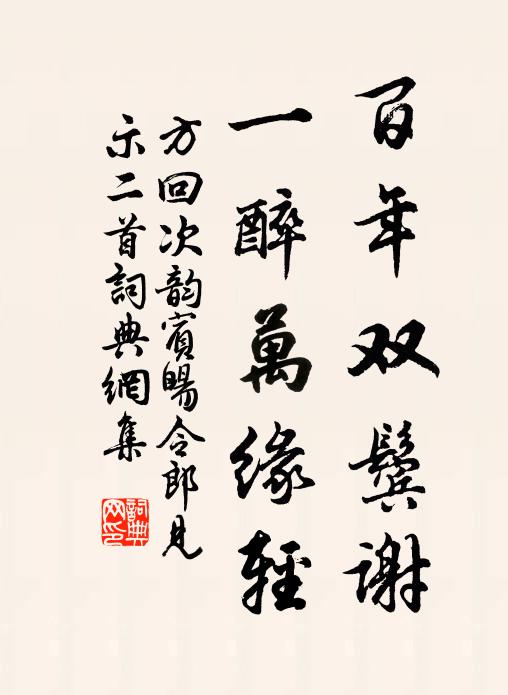 百年双鬓谢
一醉萬緣輕
方回次韵賓暘令郎見
示二首詞典網集
詞典网印